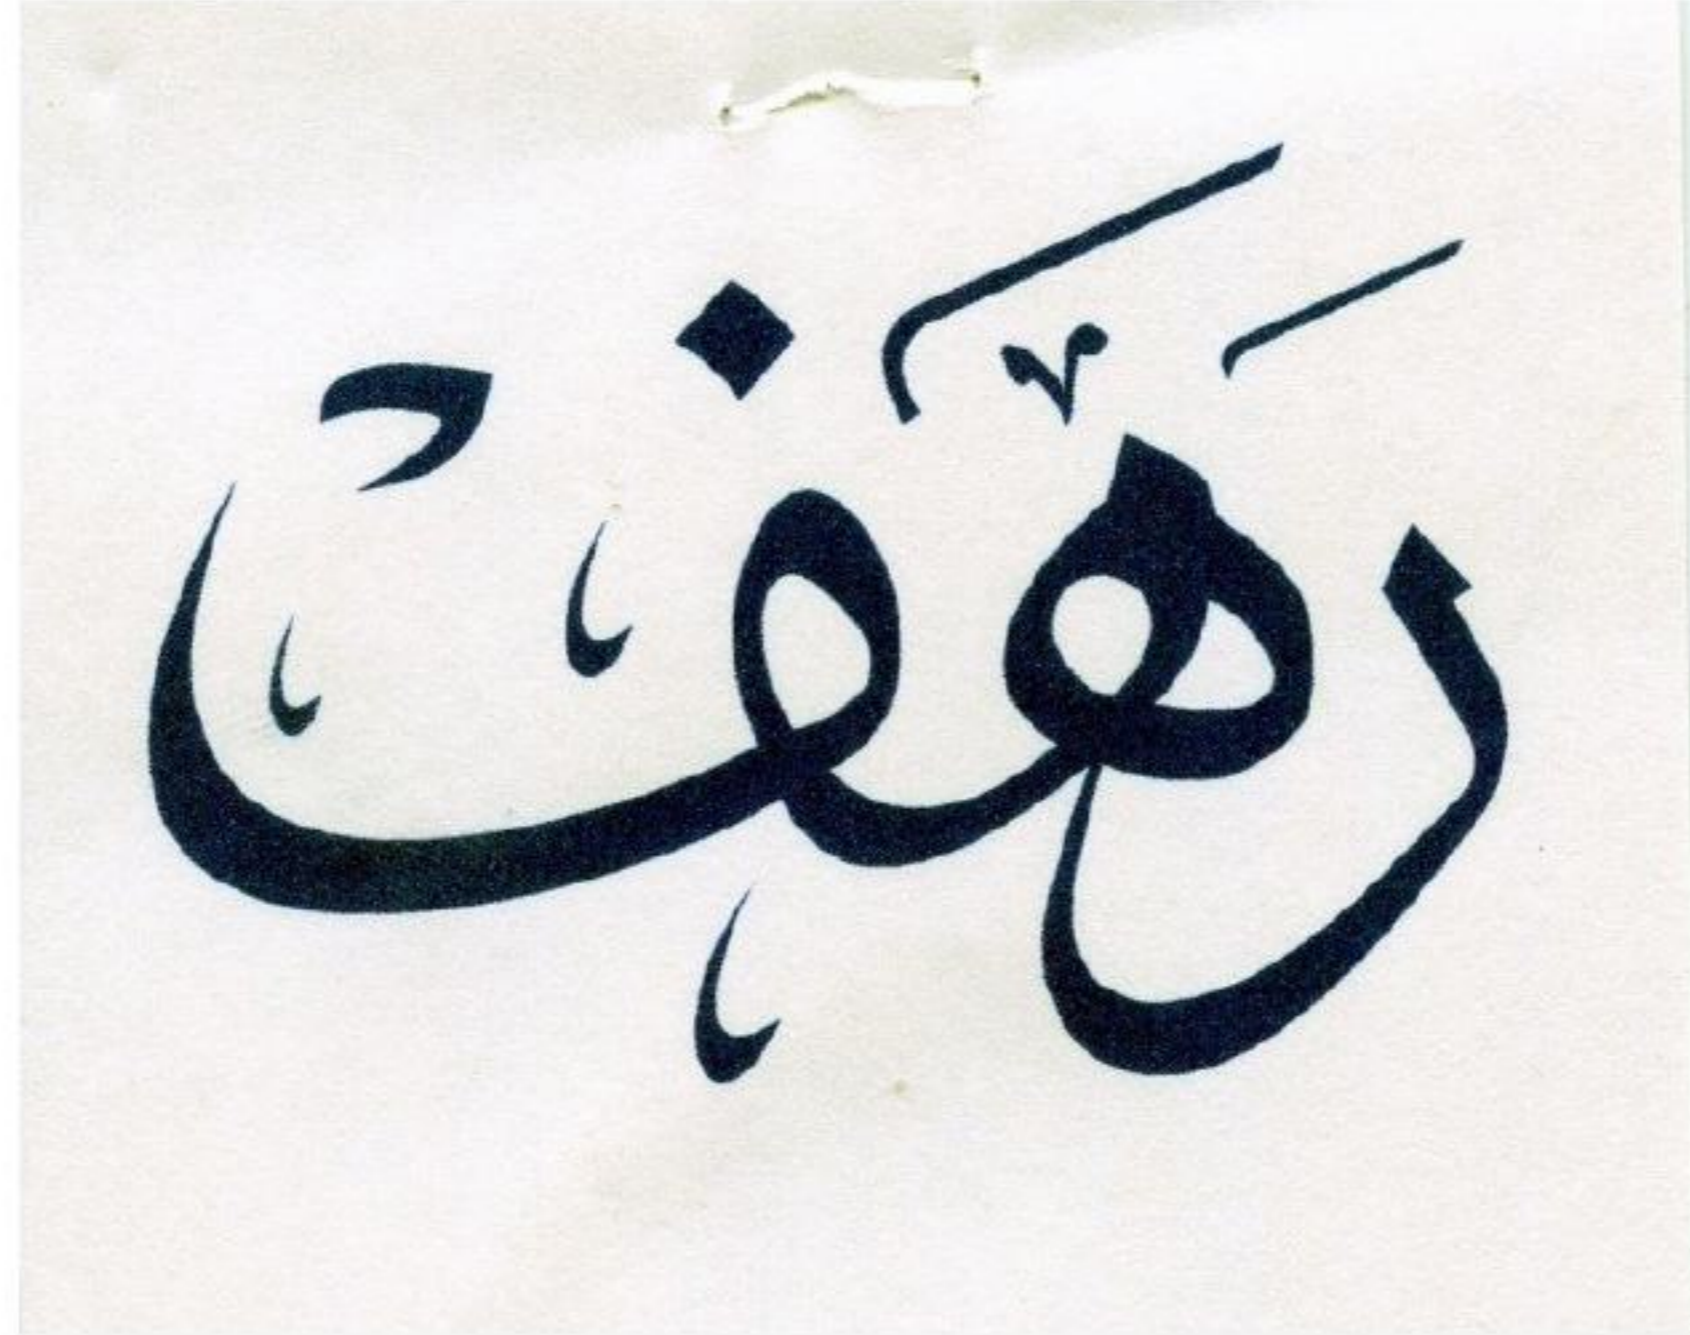 رَهَف